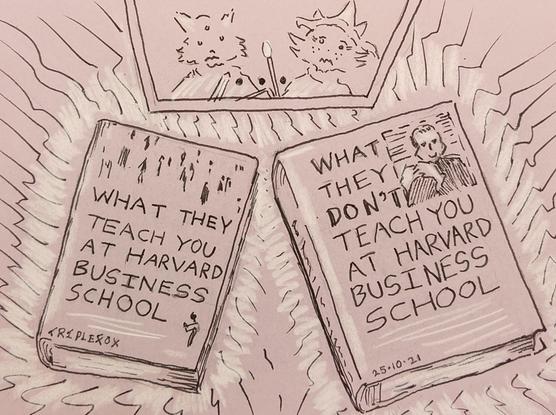 WHAT THEY
TEACH YOU
AT HARVARD
BUSINESS
SCHOOL
TRIPLEFOX
WHAT
THEY
DON'T
TEACH YOU
AT HARVARD
BUSINESS
SCHOOL
25·10·21